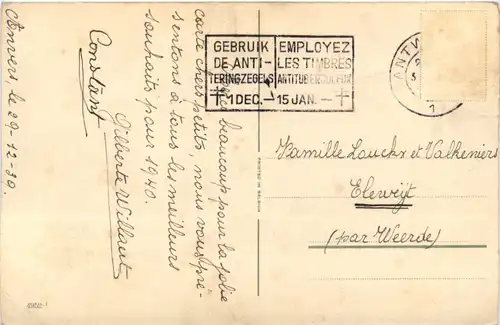 Anvers, le 29-12-39.
Merci beaucoup pour la jolie
carte chers petits, nous vous pré-
sentons à tous les meilleurs
souhaits pour 1940.
Gilberte Willaut
Constant
GEBRUIK
DE ANTI-
TERINGZEGELS
EMPLOYEZ
LES TIMBRES
ANTITUBERCULEUX
1 DEC. — 15 JAN. —
ANTW
1
Famille Lauckx et Valkeniers
Elewijt
(par Weerde)